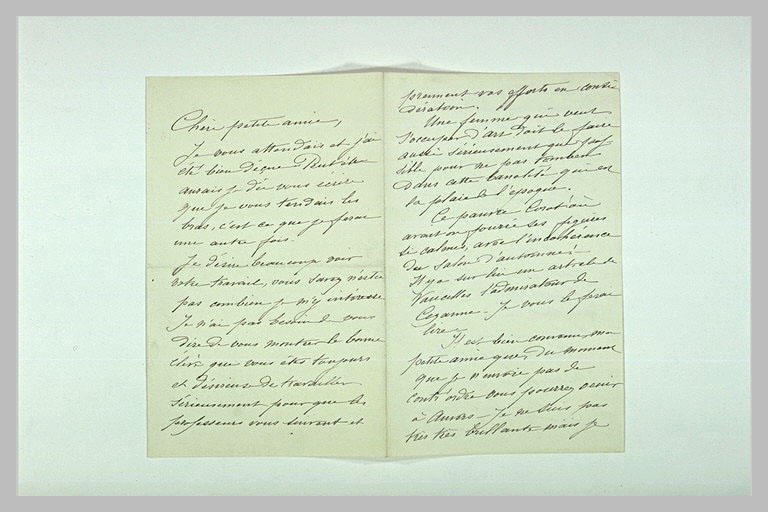 Chère petite amie,
Je vous attendais et j'ai
été bien déçue. Peut-être
aurais je dû vous écrire
que je vous tendais les
bras, c'est ce que je ferai
une autre fois.
Je désire beaucoup voir
votre travail, vous savez n'est ce
pas combien je m'y intéresse
Je n'ai pas besoin de vous
dire de vous montrer la bonne
élève que vous êtes toujours
et désireuse de travailler
sérieusement pour que les
professeurs vous suivent et
prennent vos efforts en consi
dération.
Une femme qui veut
s'occuper d'art doit le faire
aussi sérieusement que pos
sible pour ne pas tomber
dans cette banalité qui est
la plaie de l'époque.
Ce pauvre
avait on fourré ses figures
si calmes, avec l'incohérence
du Salon d'automne!
Il y a sur lui un article de
Vauxcelles l'admirateur de
Cezanne - Je vous le ferai
lire -
Il est bien convenu, ma
petite amie que du moment
que je n'envoie pas de
contr'ordre vous pourrez venir
à Auvers - Je ne suis pas
très très brillante mais je